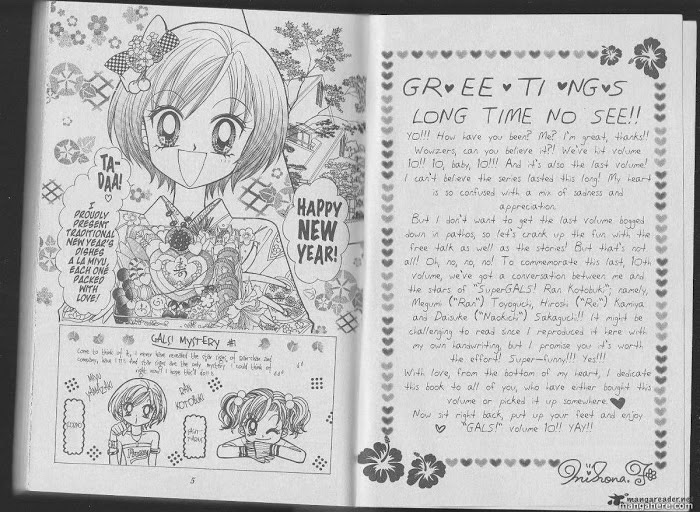 TA-
DAA!
I
PROUDLY
PRESENT
TRADITIONAL
NEW YEAR'S
DISHES
A LA MIYU,
EACH ONE
PACKED
WITH
LOVE!
HAPPY
NEW
YEAR!
GALS! MYSTERY
Come to think of it, I never have revealed the star signs of Ran-chan and
company, have I? Is that star signs are the only mystery I could think of
right now? I hope they'll do!
MIYU
YAMAZAKI
RAN
KOTOBUKI
5
GREETINGS
LONG TIME NO SEE!!
YO!!! How have you been? Me? I'm great, thanks!!
Wowzers, can you believe it?! We've hit volume
10!! 10, baby, 10!!! And it's also the last volume!
I can't believe the series lasted this long! My heart
is so confused with a mix of sadness and
appreciation.
But I don't want to get the last volume bogged
down in pathos, so let's crank up the fun with the
free talk as well as the stories! But that's not
all! Oh, no, no, no! To commemorate this last, 10th
volume, we've got a conversation between me and
the stars of "SuperGALS! Ran Kotobuk"; namely,
Megumi ("Ran") Toyoguchi, Hiroshi ("Rei") Kamiya
and Daisuke ("Naokichi") Sakaguchi!! It might be
challenging to read since I reproduced it here with
my own handwriting, but I promise you it's worth
the effort! Super-funny!!! Yes!!!
With love, from the bottom of my heart, I dedicate
this book to all of you, who have either bought this
volume or picked it up somewhere.
Now sit right back, put up your feet and enjoy
"GALS!" volume 10!! YAY!!
Mihona. F
mangareader.net
mangahere.com